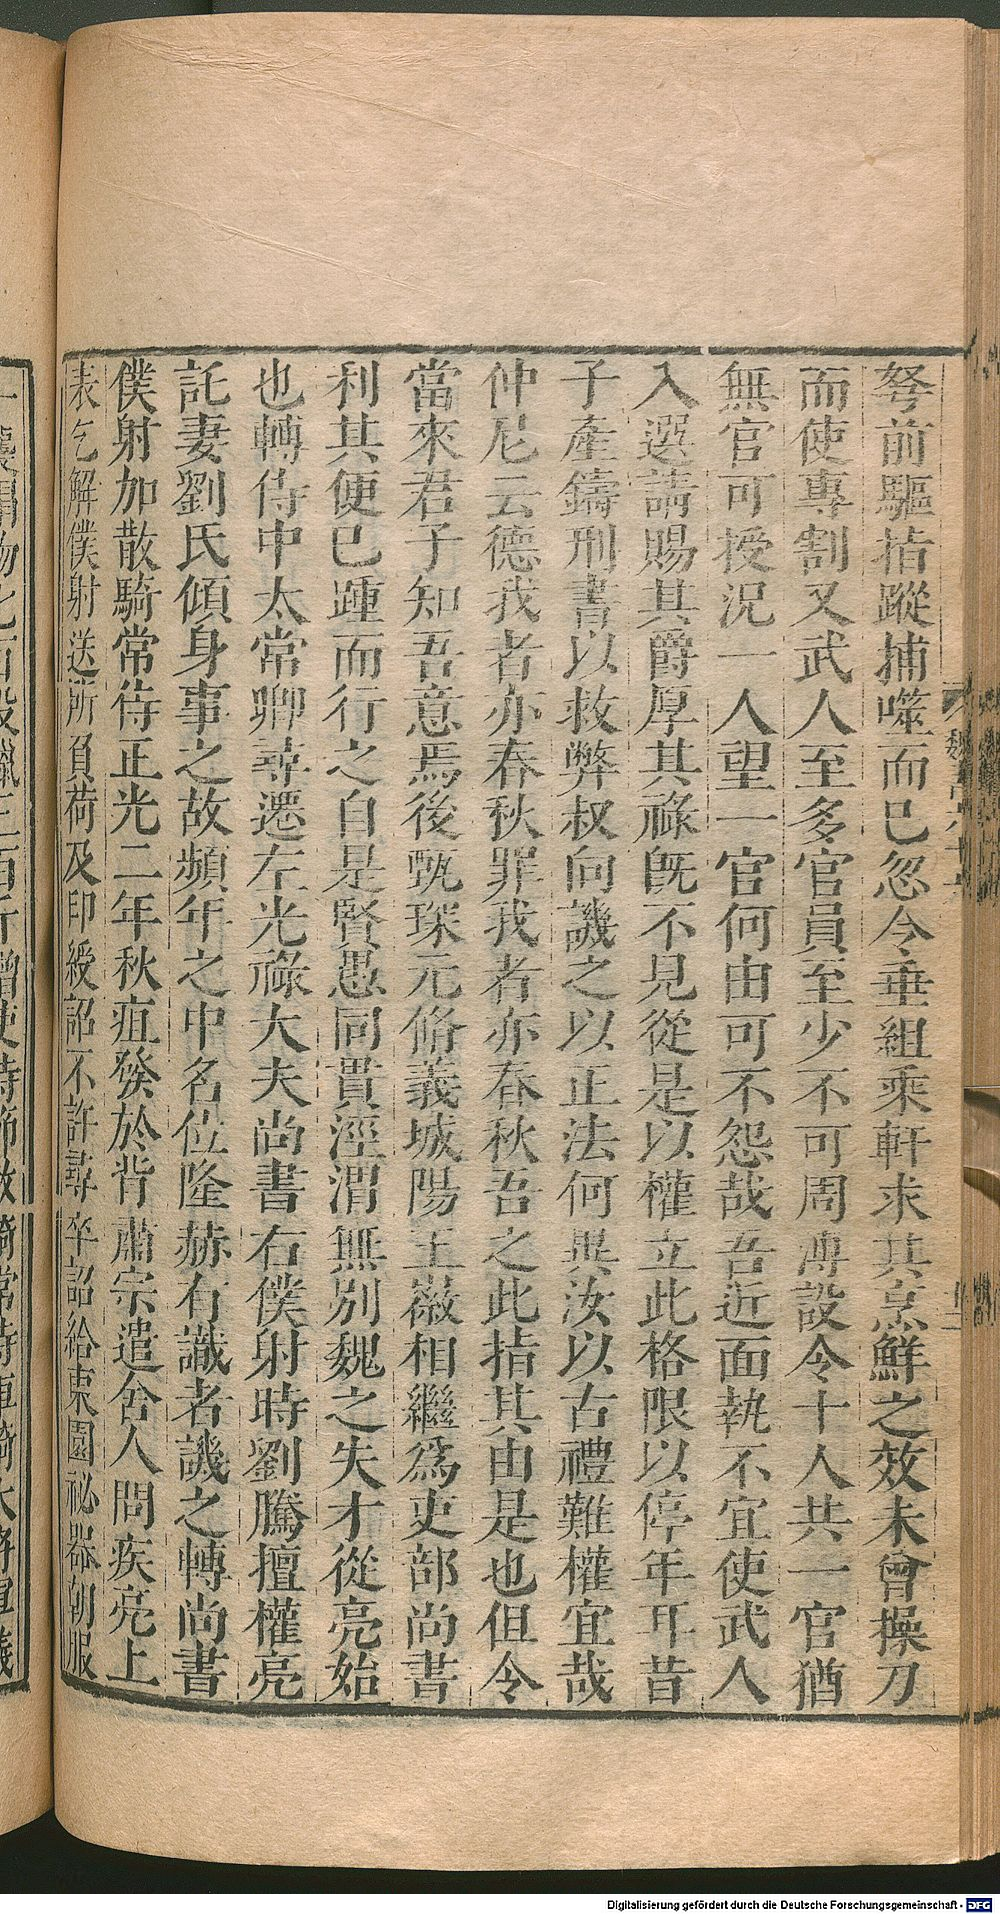 弩前驅指蹤捕噬而已忽令垂組乘軒求其烹鮮之效未曾操刀
而使專割又武人至多官員至少不可周溥設令十人共一官猶
無官可授況一人望一官何由可不怨哉吾近面執不宜使武人
入選請賜其爵厚其祿旣不見從是以權立此格限以停年耳昔
子產鑄刑書以救弊叔向譏之以正法何異汝以古禮難權宜哉
仲尼云德我者亦春秋罪我者亦春秋吾之此指其由是也但令
當來君子知吾意焉後甄琛元脩義城陽王徽相繼爲吏部尚書
利其便已踵而行之自是賢愚同貫涇渭無別魏之失才從亮始
也轉侍中太常卿尋遷左光祿大夫尚書右僕射時劉騰擅權亮
託妻劉氏傾身事之故頻年之中名位隆赫有識者譏之轉尚書
僕射加散騎常侍正光二年秋疽發於背肅宗遣舍人問疾亮上
表乞解僕射送所負荷及印綬詔不許尋卒詔給東園祕器朝服
Digitalisierung gefördert durch die Deutsche Forschungsgemeinschaft - DFG